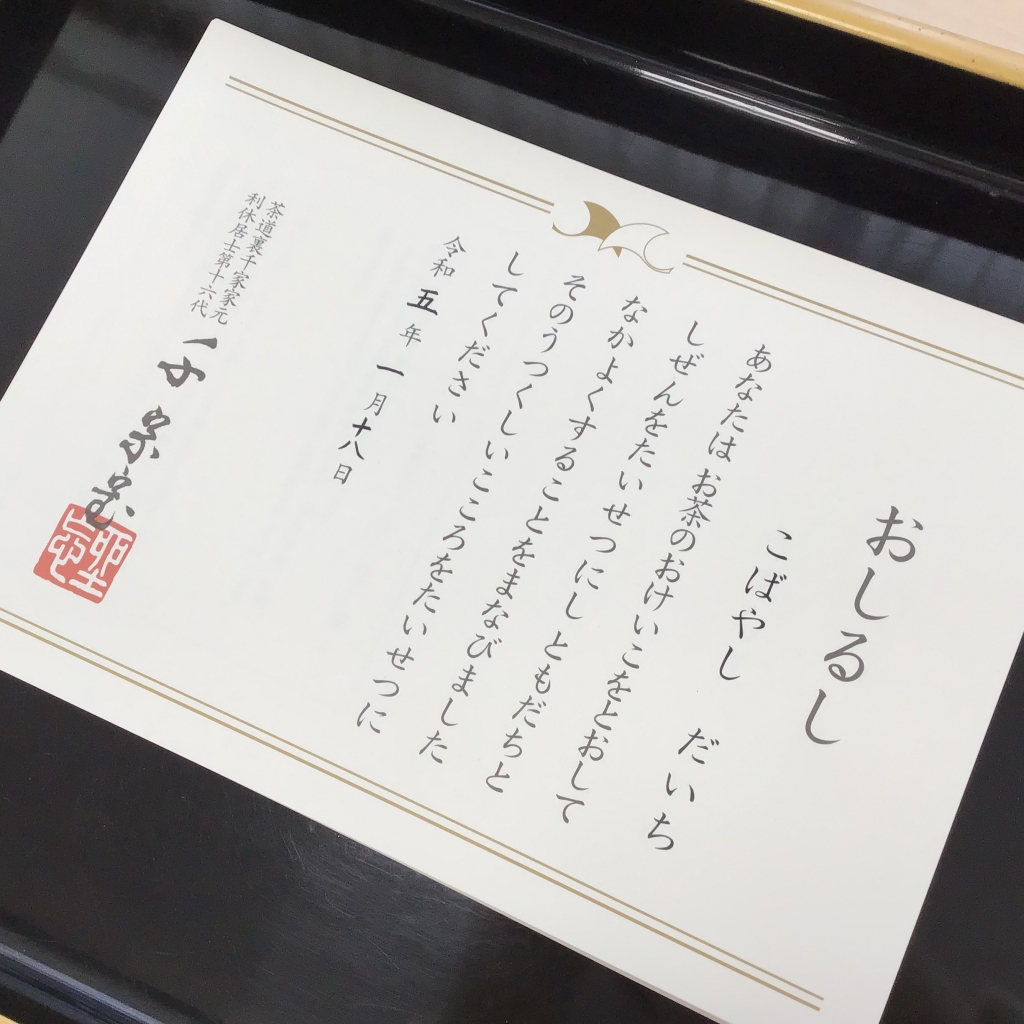 おしるし
こばやし だいち
あなたは お茶のおけいこをとおして
しぜんをたいせつにし ともだちと
なかよくすることをまなびました
そのうつくしいこころをたいせつに
してください
令和 五 年 一 月 十八 日
茶道裏千家家元
利休居士第十六代
千宗室